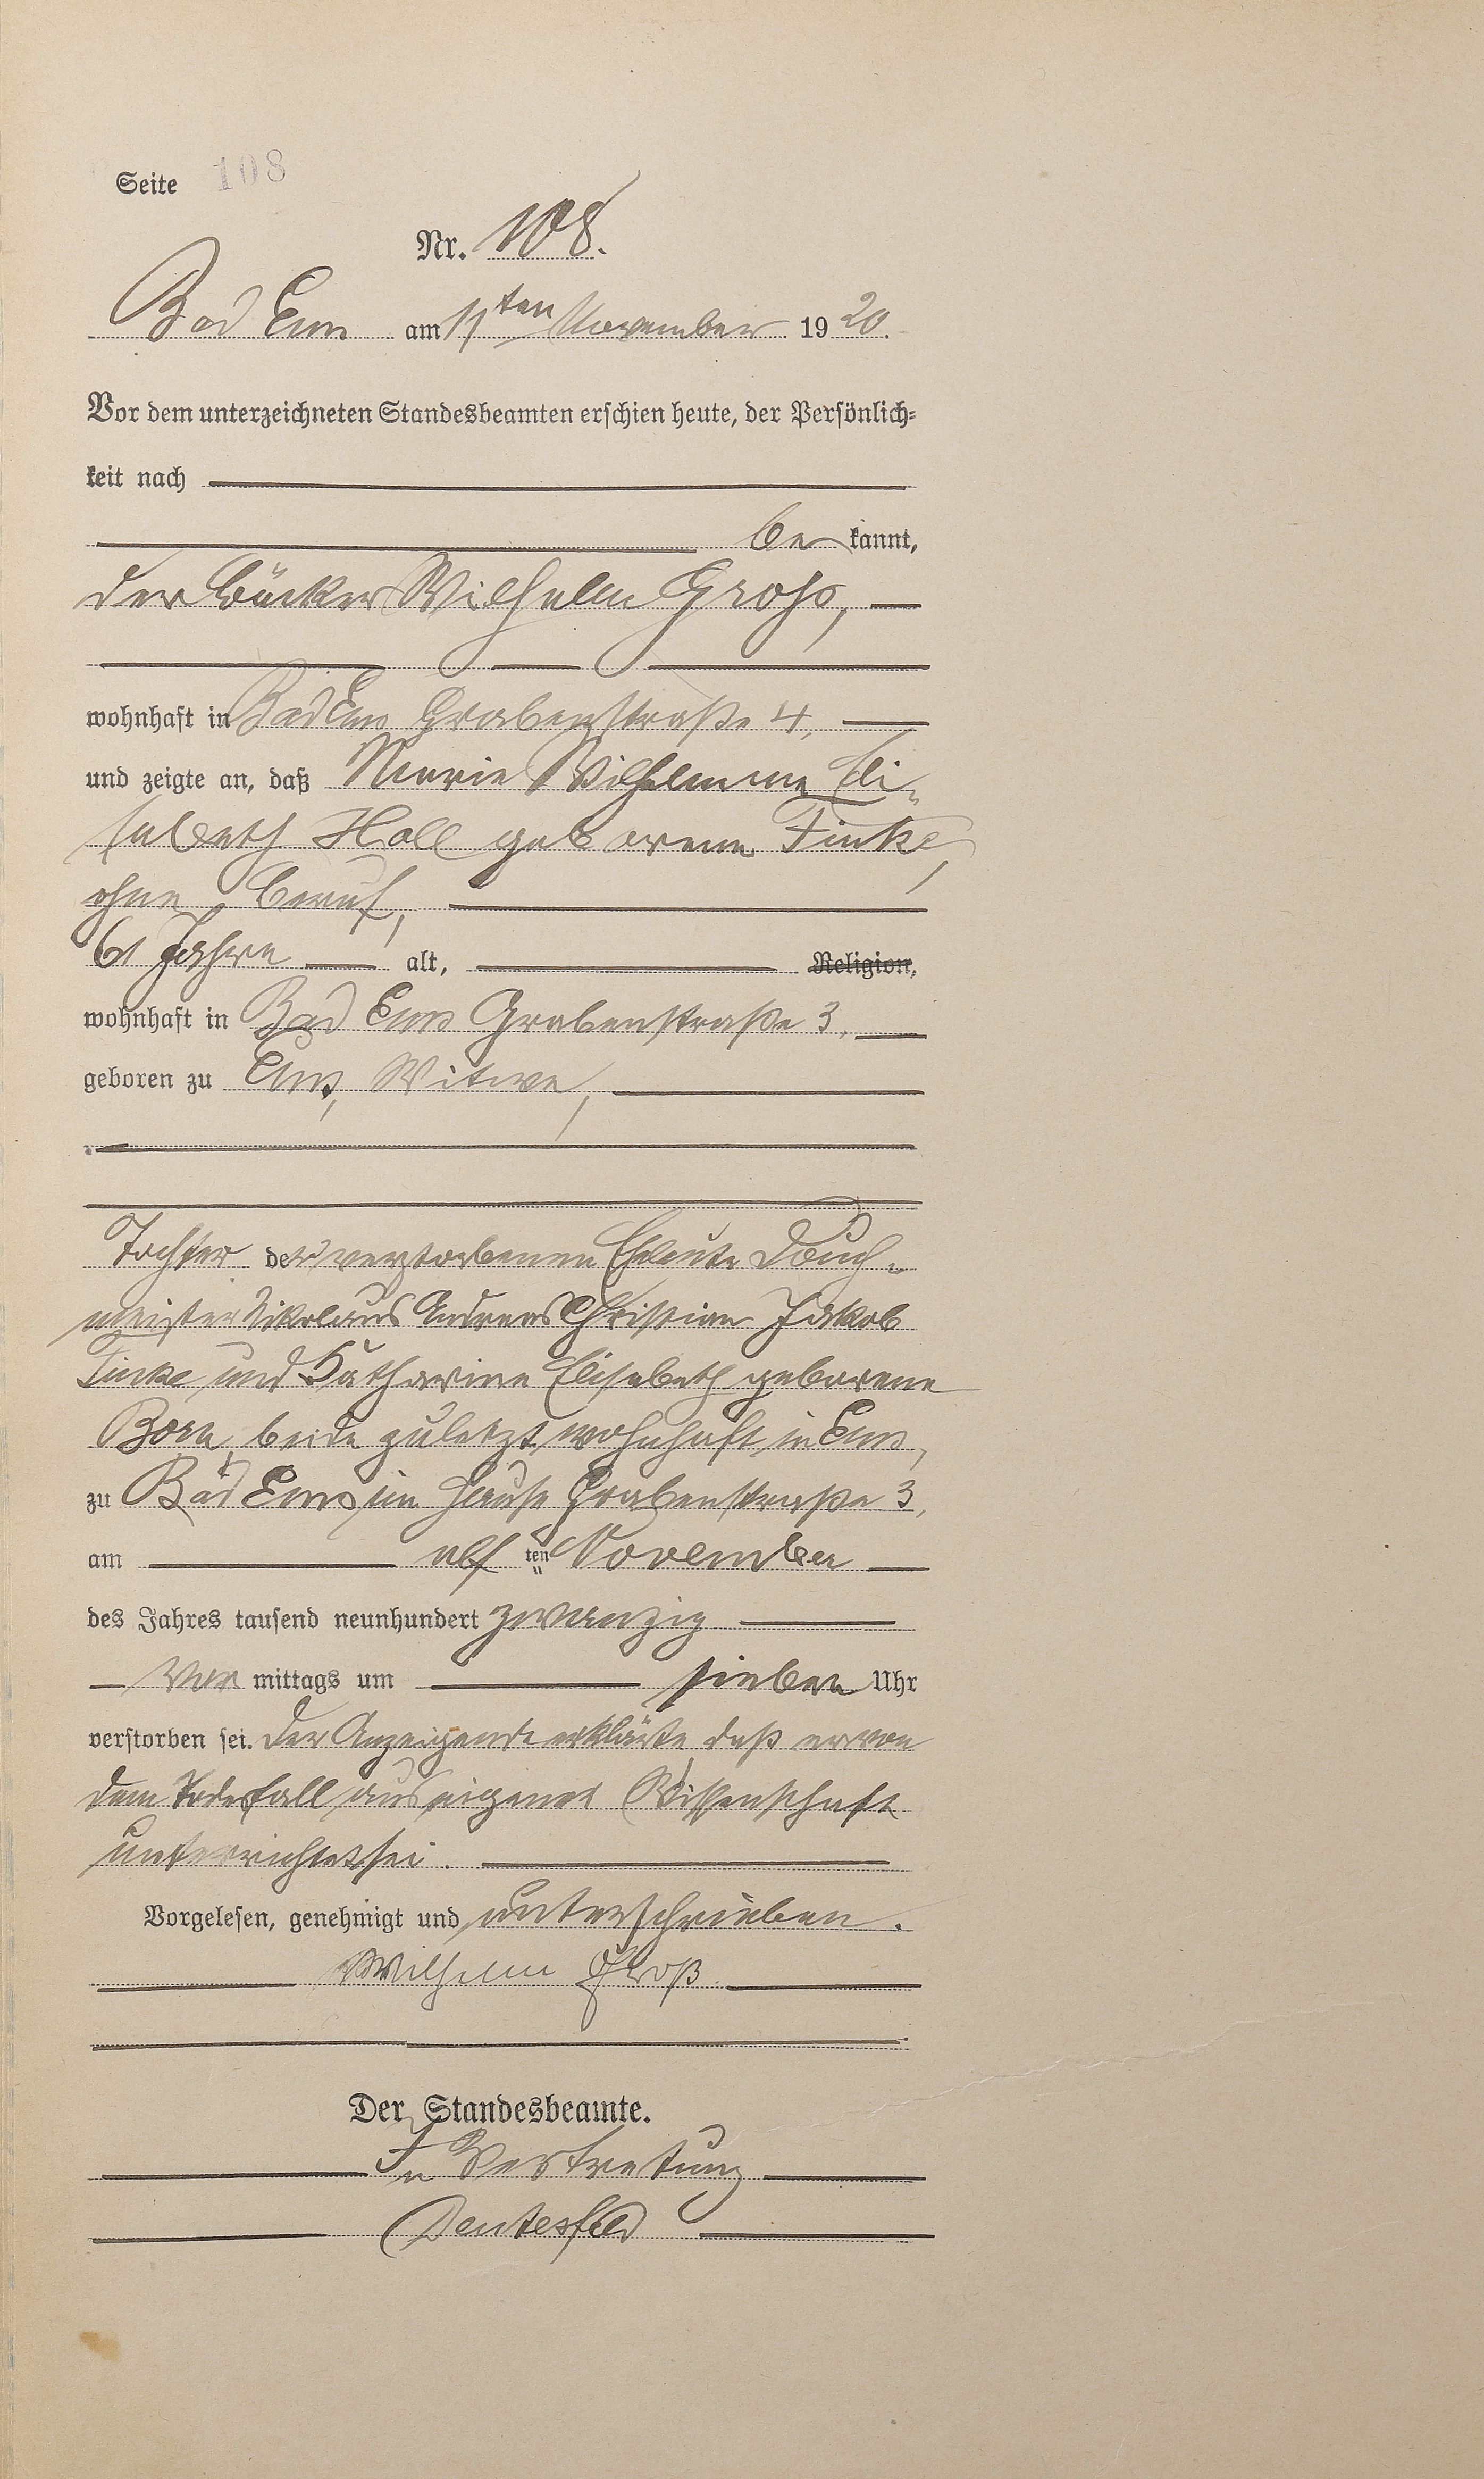 Seite 108
Nr. 108.
Bad Ems am 11ten November 1920.
Vor dem unterzeichneten Standesbeamten erschien heute, der Persönlich-
keit nach
be kannt,
der Bäcker Wilhelm Gross,
wohnhaft in Bad Ems Grabenstraße 4,
und zeigte an, daß Marie Wilhelmine Eli-
sabeth Holl geborene Finke,
ohne Beruf,
61 Jahre alt, Religion,
wohnhaft in Bad Ems Grabenstraße 3,
geboren zu Ems, Witwe,
Tochter der verstorbenen Eheleute
meister Nikolaus Andreas Christian Jakob
Finke und Katharine Elisabeth geborene
Born, beide zuletzt wohnhaft in Ems,
zu Bad Ems im Hause Grabenstraße 3,
am elf ten November
des Jahres tausend neunhundert zwanzig
Vor mittags um sieben Uhr
verstorben sei. Der Anzeigende erklärte, daß er von
dem Todesfall aus eigener Wissenschaft
unterrichtet sei.
Vorgelesen, genehmigt und unterschrieben.
Wilhelm Groß
Der Standesbeamte.
In Vertretung